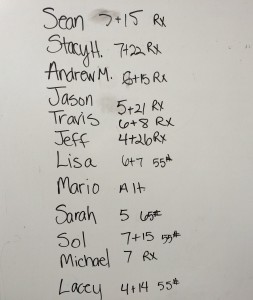 Sean 7+15 Rx
Stacy H. 7+22 Rx
Andrew M. 8+15 Rx
Jason 5+21 Rx
Travis 6+8 Rx
Jeff 4+26 Rx
Lisa 6+7 55#
Mario Alt
Sarah 5 65#
Sol 7+15 55#
Michael 7 Rx
Lacey 4+14 55#